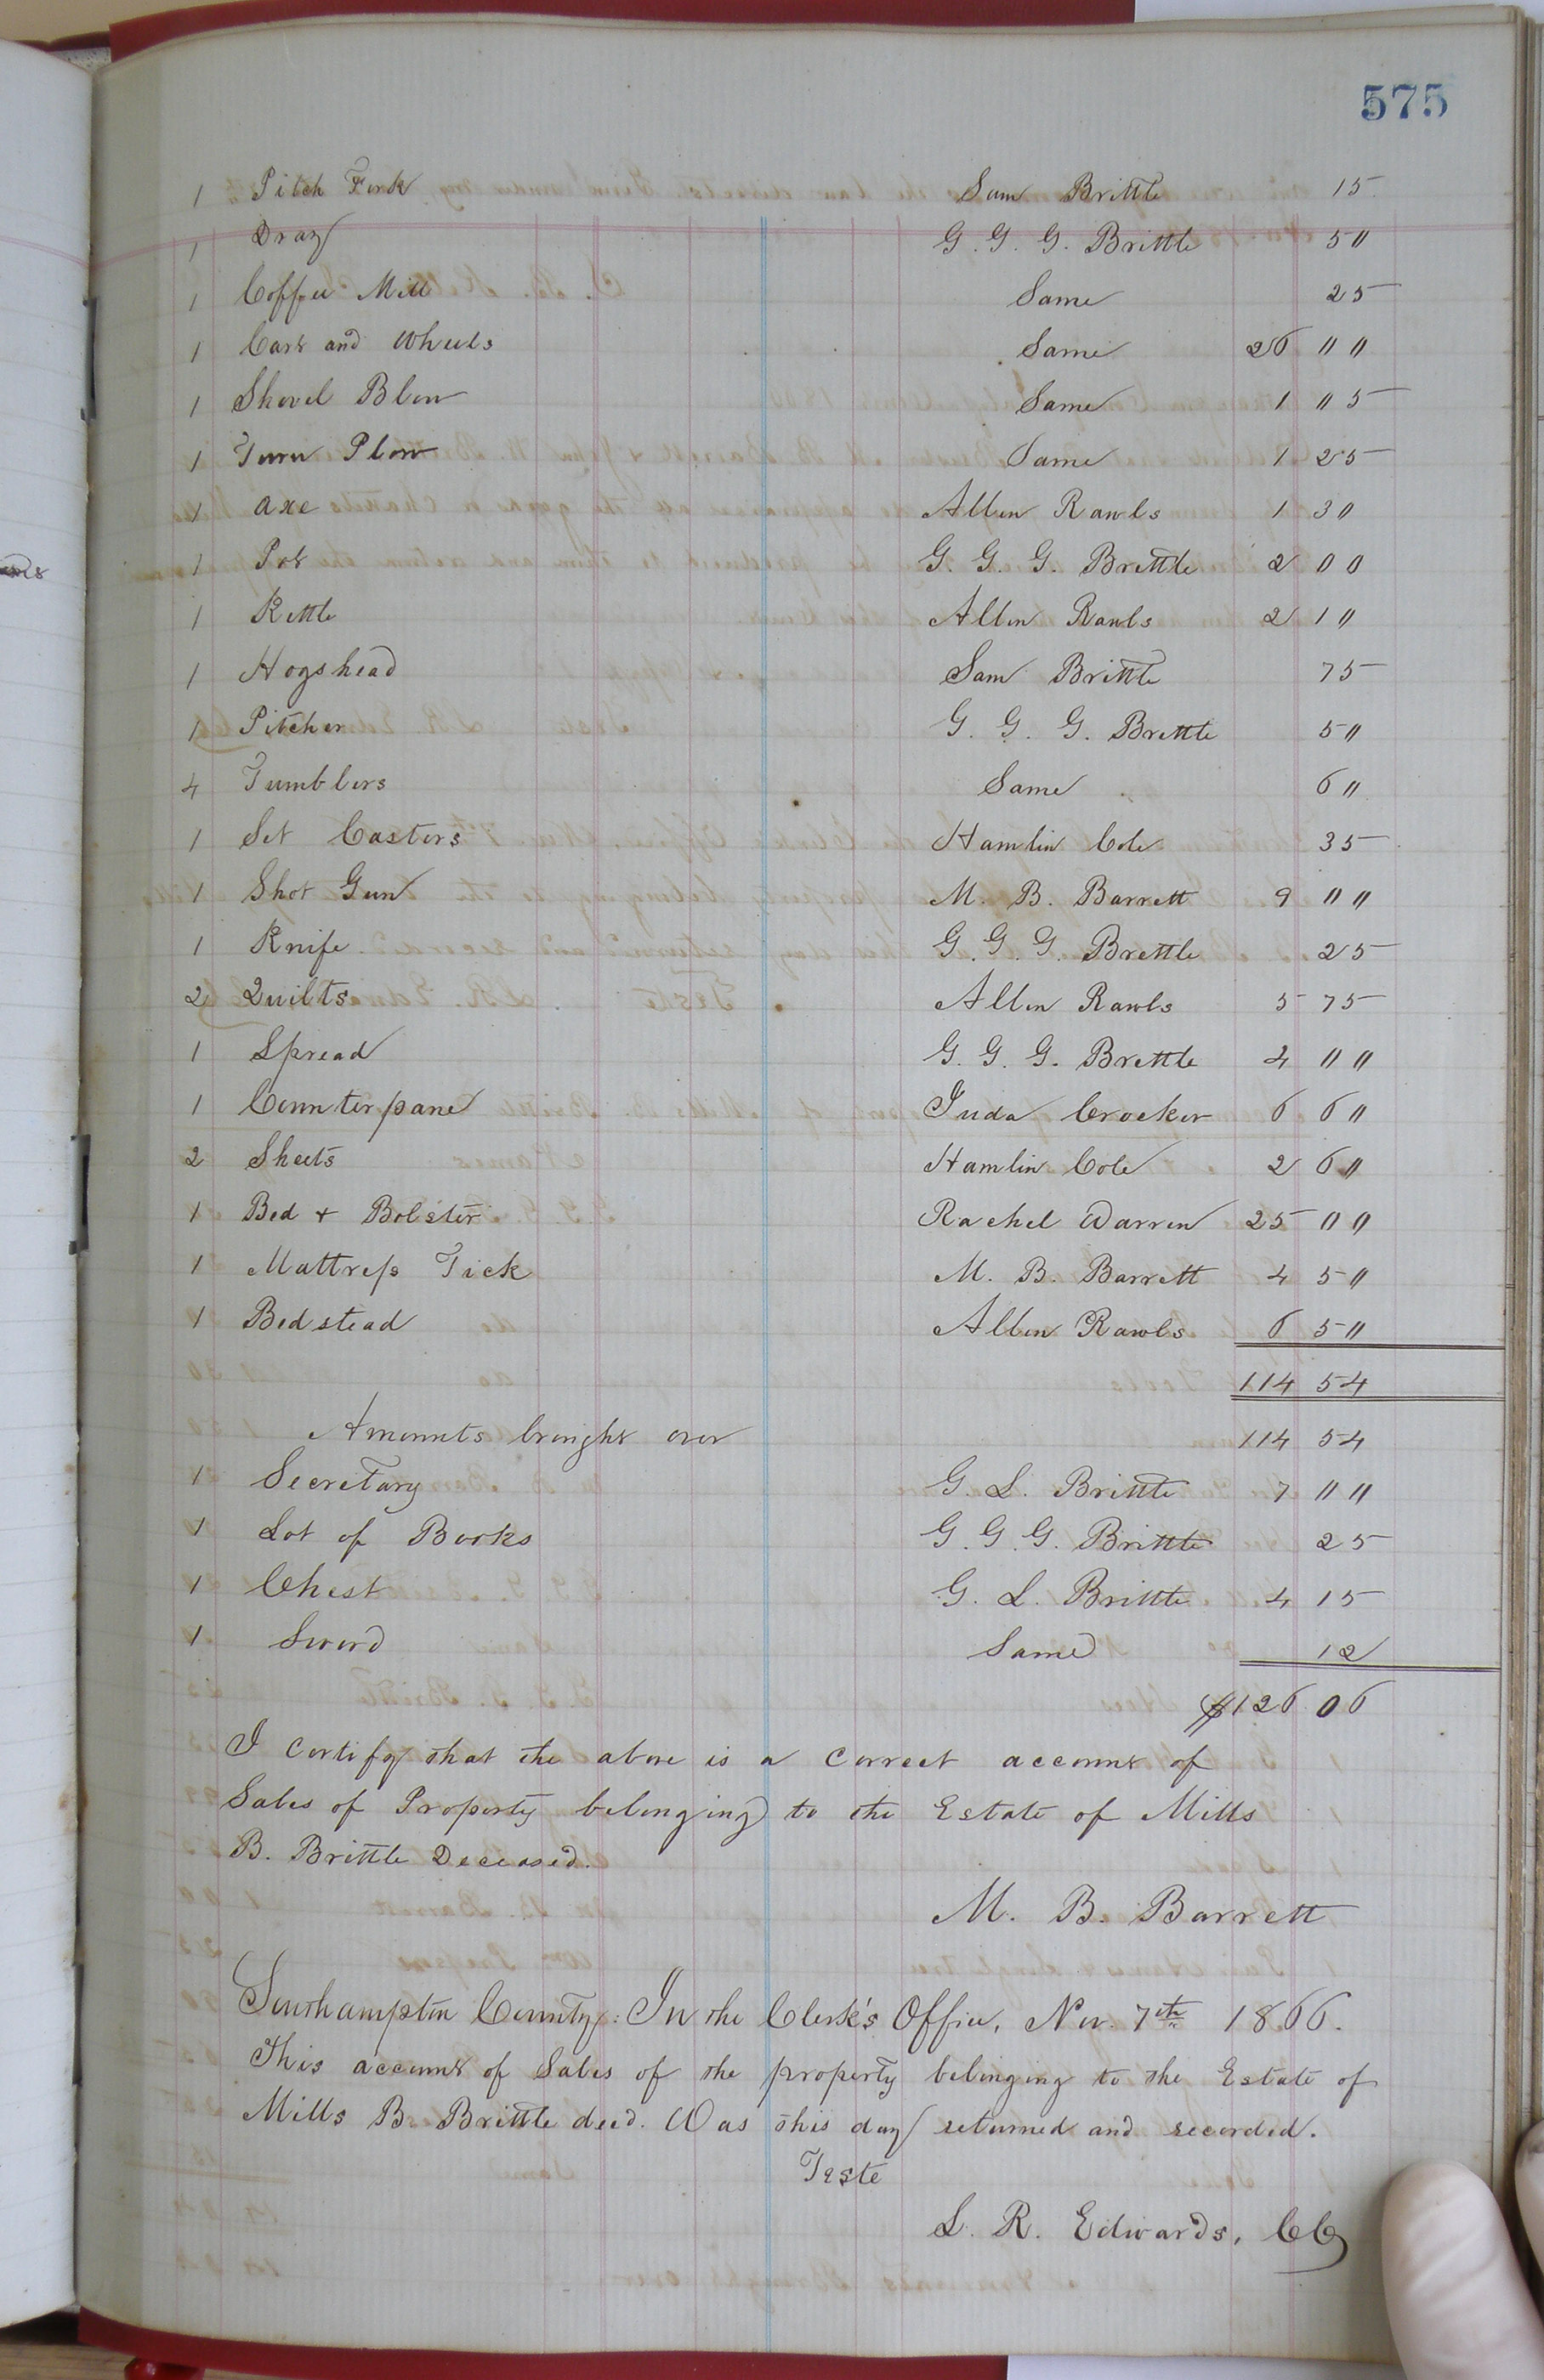 575
1 Pitch Fork Sam Brittle 15
1 Dray G. G. G. Brittle 5"
1 Coffee Mill Same 25
1 Cart and Wheels Same 26 ""
1 Shovel Blow Same 1 "5
1 Turn Plow Same 1 25
1 axe Allen Rawls 1 30
1 Pot G. G. G. Brittle 2 00
1 Kettle Allen Rawls 2 1"
1 Hogshead Sam Brittle 75
1 Pitcher G. G. G. Brittle 5"
4 Tumblers Same 6"
1 Set Castors Hamlin Cole 35
1 Shot Gun M. B. Barrett 9 ""
1 Knife G. G. G. Brittle 25
2 Quilts Allen Rawls 5 75
1 Spread G. G. G. Brittle 4 ""
1 Counterpane Juda Crocker 6 6"
2 Sheets Hamlin Cole 2 6"
1 Bed + Bolster Rachel Warren 25 00
1 Mattress Tick M. B. Barrett 4 5"
1 Bedstead Allen Rawls 6 5"
114 54
Amounts brought over 114 54
1 Secretary G. L. Brittle 7 ""
1 Lot of Books G. G. G. Brittle 25
1 Chest G. L. Brittle 4 15
1 Sword Same 12
$126 06
I certify that the above is a correct account of
Sales of Property belonging to the Estate of Mills
B. Brittle Deceased.
M. B. Barrett
Southampton County: In the Clerk's Office, Nov. 7th 1866.
This account of Sales of the property belonging to the Estate of
Mills B. Brittle decd. Was this day returned and recorded.
Teste
L. R. Edwards, CC